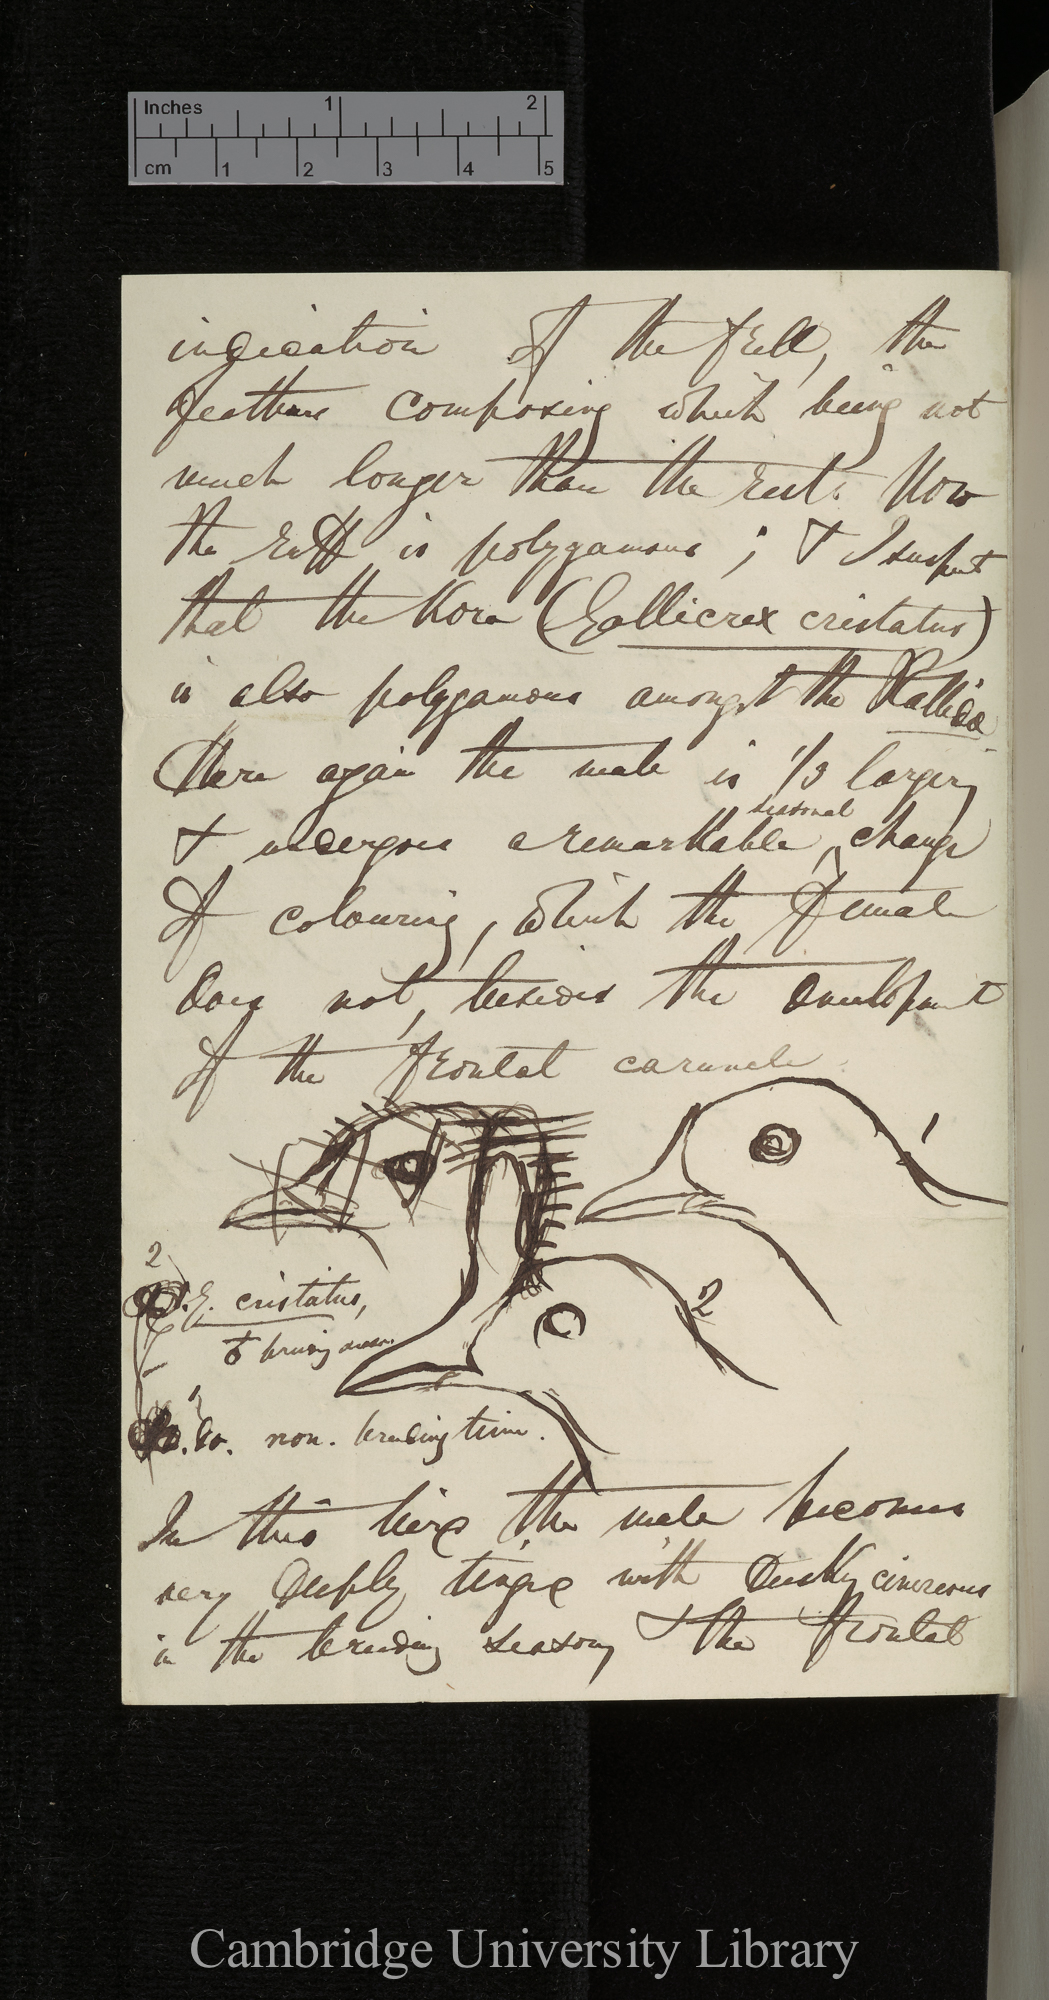 Inches 1 2
cm 1 2 3 4 5
indication of the frill, the
feathers composing which being not
much longer than the rest. Now
the Ruff is polygamous; & I suspect
that the Kora (Gallicrex cristatus)
is also polygamous amongst the Rallidæ
Here again the male is 1/3 larger,
seasonal
& undergoes a remarkable, change
of colouring, which the female
does not, besides the development
of the frontal caruncle.
1
2
2
G. cristatus,
♂ breeding season.
1
Do. do. non-breeding time.
In this bird the male becomes
very deeply tinged with dusky cinereous
in the breeding season, & the frontal
Cambridge University Library